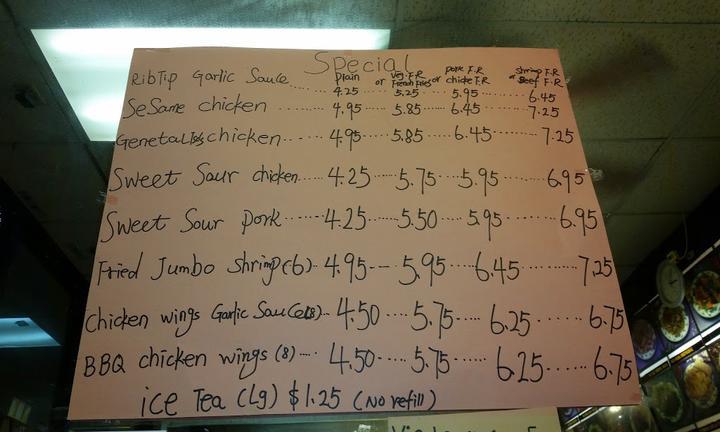 Special
plain or veg.F.R French Fries or pork F.R chicke F.R shrimp F.R or Beef F.R
RibTip Garlic Sauce..... 4.25 5.25 5.95 6.45
SeSame chicken 4.95 5.85 6.45 7.25
GenetalTs chicken.... 4.95 5.85 6.45 7.25
Sweet Saur chicken.... 4.25 ..... 5.75 .... 5.95 ........ 6.95
Sweet Sour pork ...... 4.25 ..... 5.50 .... 5.95 ....... 6.95
Fried Jumbo Shrimp (6).. 4.95 --- 5.95 ..... 6.45 ........ 7.25
Chicken wings Garlic Sauce(8).. 4.50 .... 5.75 ..... 6.25 ...... 6.75
BBQ chicken wings (8) .... 4.50 .... 5.75 ..... 6.25 .... 6.75
ice Tea (Lg) $1.25 (No refill)